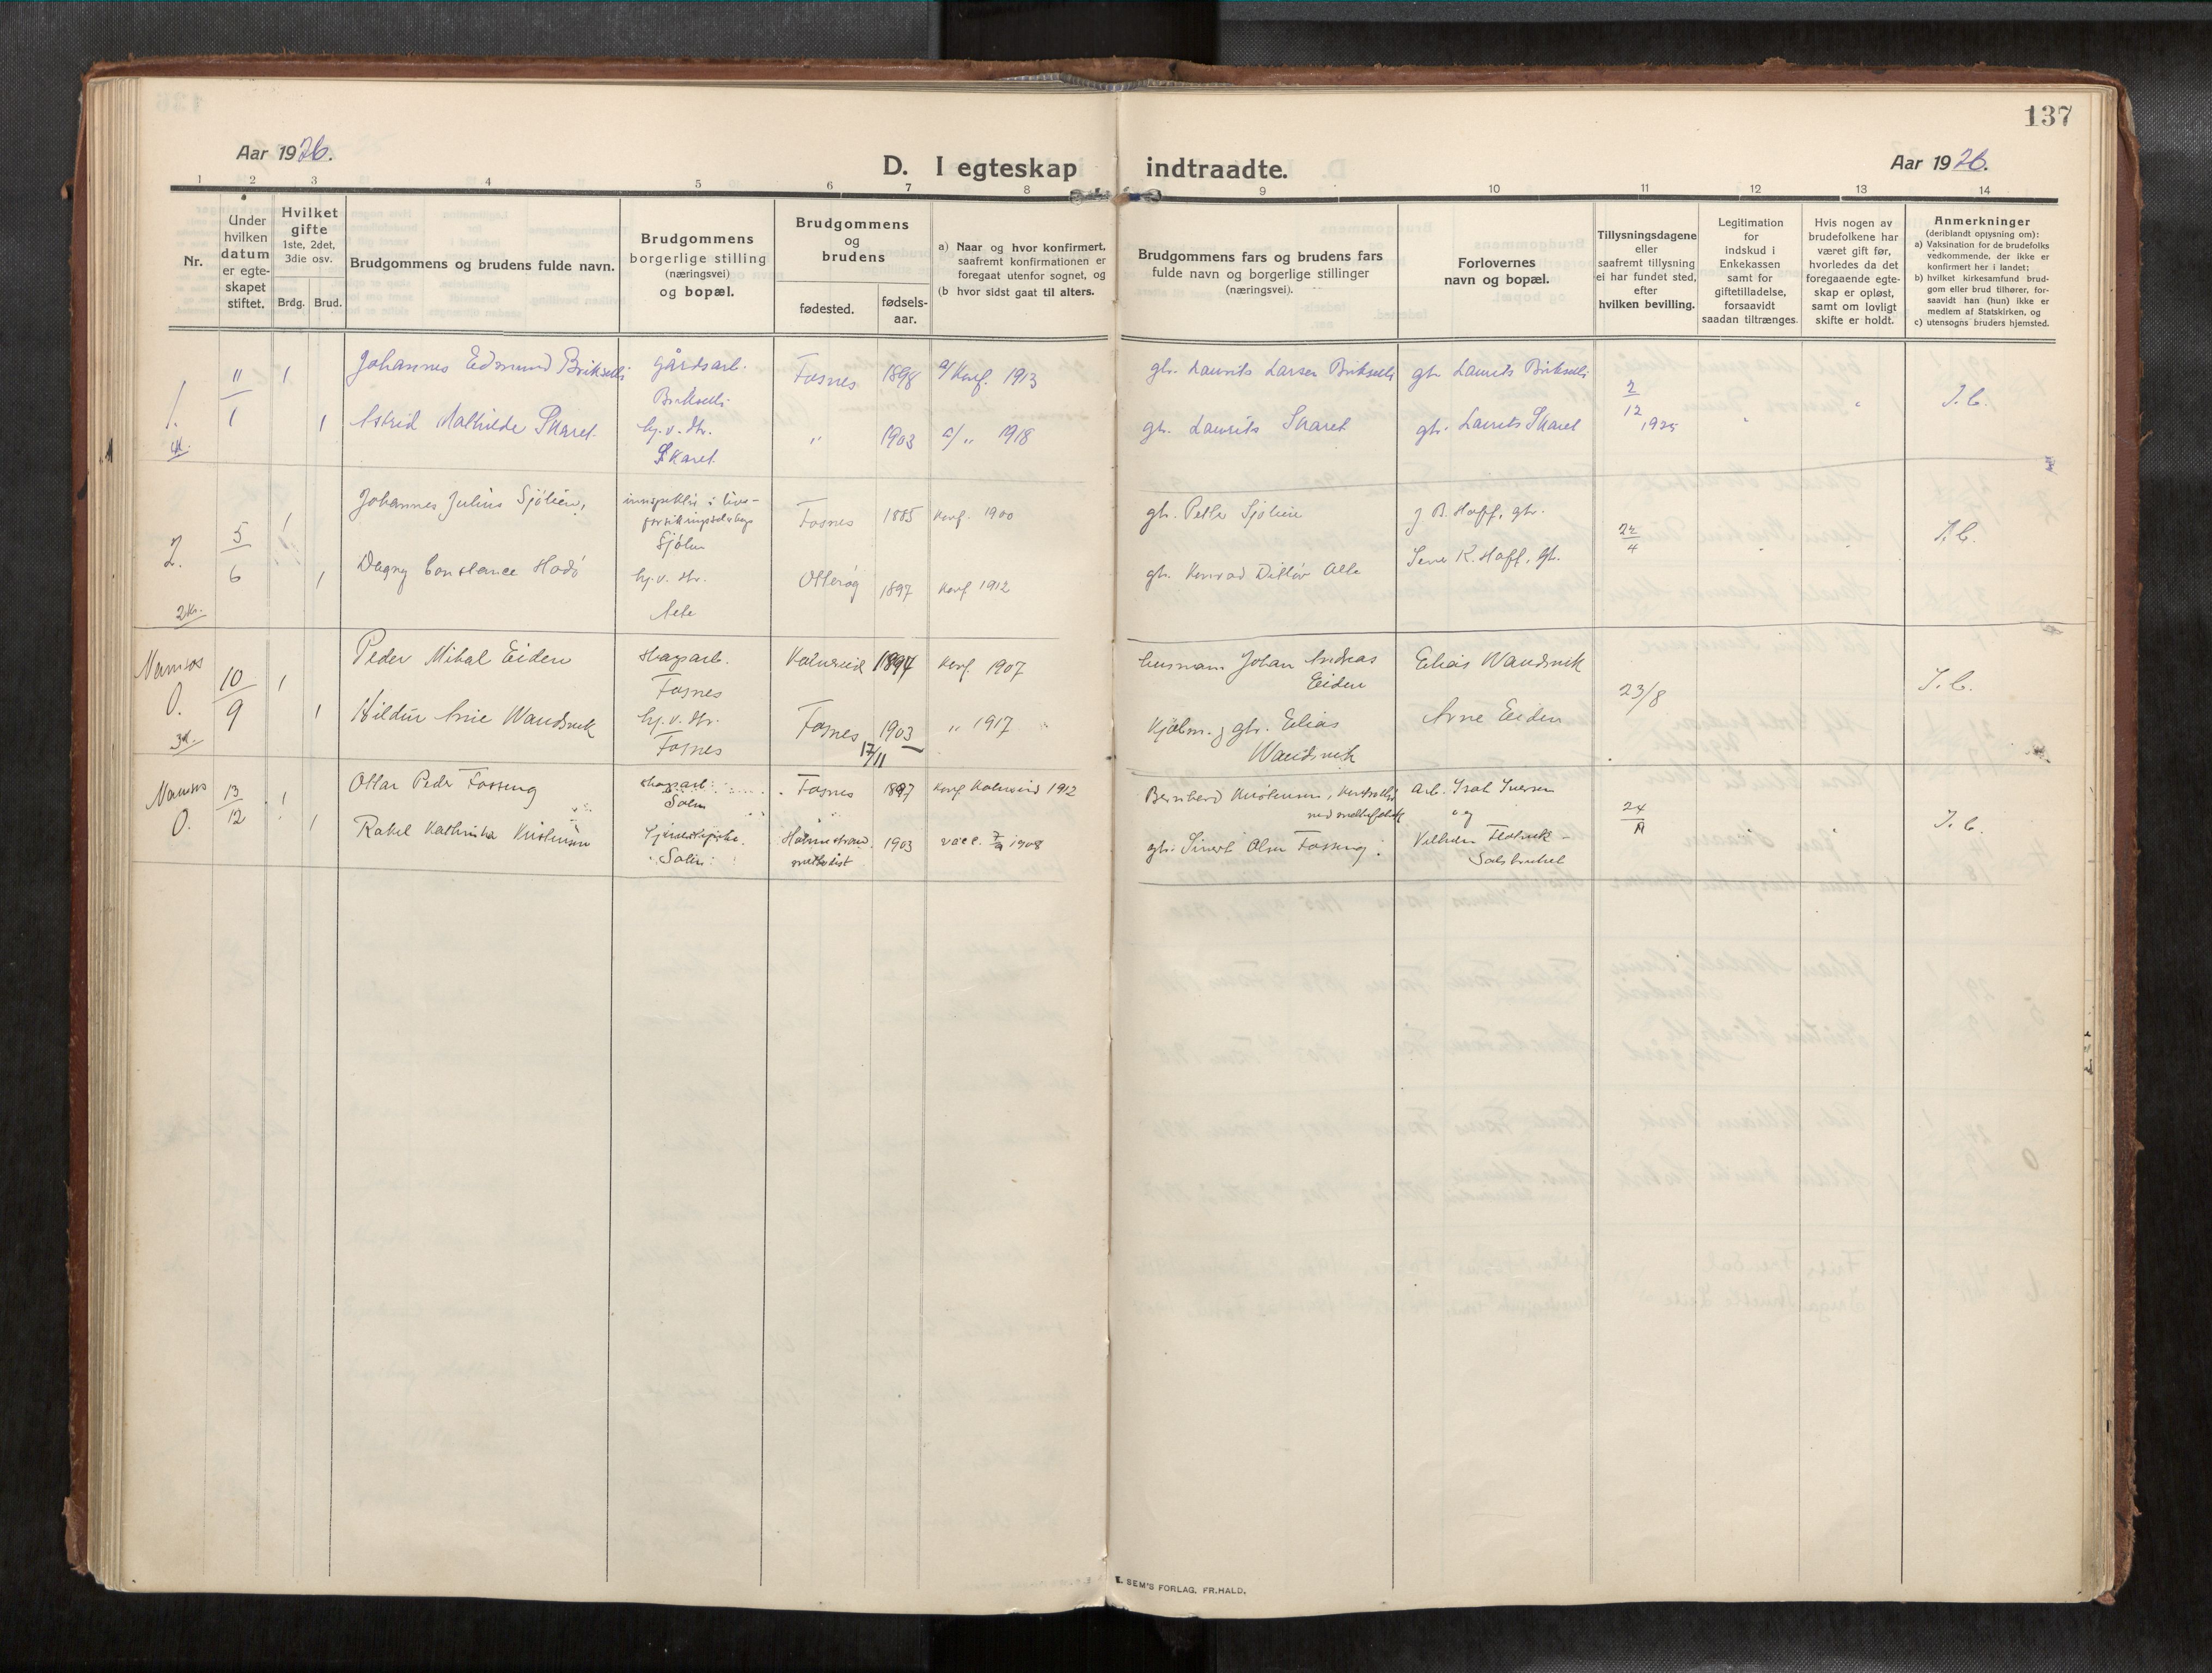 137
Aar 1926.
D. I egteskap indtraadte.
Aar 1926.
1 2 3 4 5 6 7 8 9 10 11 12 13 14
Nr.
Under
hvilken
datum
er egte-
skapet
stiftet.
Hvilket
gifte
1ste, 2det,
3die osv.
Brdg. Brud.
Brudgommens og brudens fulde navn.
Brudgommens
borgerlige stilling
(næringsvei)
og bopæl.
Brudgommens
og
brudens
fødested.
fødsels-
aar.
a) Naar og hvor konfirmert,
saafremt konfirmationen er
foregaat utenfor sognet, og
(b hvor sidst gaat til alters.
Brudgommens fars og brudens fars
fulde navn og borgerlige stillinger
(næringsvei).
Forlovernes
navn og bopæl.
Tillysningsdagene
eller
saafremt tillysning
ei har fundet sted,
efter
hvilken bevilling.
Legitimation
for
indskud i
Enkekassen
samt for
giftetilladelse,
forsaavidt
saadan tiltrænges.
Hvis nogen av
brudefolkene har
været gift før,
hvorledes da det
foregaaende egte-
skap er opløst,
samt om lovligt
skifte er holdt.
Anmerkninger
(deriblandt opysning om):
a) Vaksination for de brudefolks
vedkommende, der ikke er
konfirmert her i landet;
b) hvilket kirkesamfund brud-
gom eller brud tilhører, for-
saavidt han (hun) ikke er
medlem af Statskirken, og
c) utensogns bruders hjemsted.
1.
11/1
1 Johannes Edmund Brikselli gårdsarb. Fosnes 1898 a/ Konf. 1913 gbr. Laurits Larsen Brikselli gbr. Laurits Brikselli 2/12 1925 I.C.
Brikselli
1 Astrid Mathilde Skaret hj.v.dtr. " 1903 a/ " 1918 gbr. Laurits Skaret gbr. Laurits Skaret
Skaret
2.
5/6
1 Johannes Julius Sjölien, Fosnes 1885 Konf. 1900 gbr. Petter Sjölien J B. Hoff, gbr. 22/4 I.C.
1 Dagny Constance Hodö hj.v.dtr. Otterøy 1897 Konf 1912 gbr. Konrad Ditlöv K. Hoff, gbr.
2kr.
Namsos
0.
10/9
1 Peder Mikal Eiden Kolvereid 1894 Konf. 1907 husmann Johan Andreas Elias Wandsvik 23/8 I.C.
Fosnes Eiden
1 Hildur Wandsvik hj.v.dtr. Fosnes 1903 " 1917 gbr. Elias Arne Eiden
Fosnes 17/11 Wandsvik
Namsos
0.
13/12
1 Ottar Peder Fossing Fosnes 1897 Konf Kolvereid 1912 Bernhard Kristensen, Arb. Iversen 24/ I.C.
Salen og
1 Rakel Kathinka Kristensen Holmestrand 1903 vacc. 1908 gbr. Sivert Olsen Fossing.
Salen metodist Salsbruket
E. SEM'S FORLAG, FR.HALD.